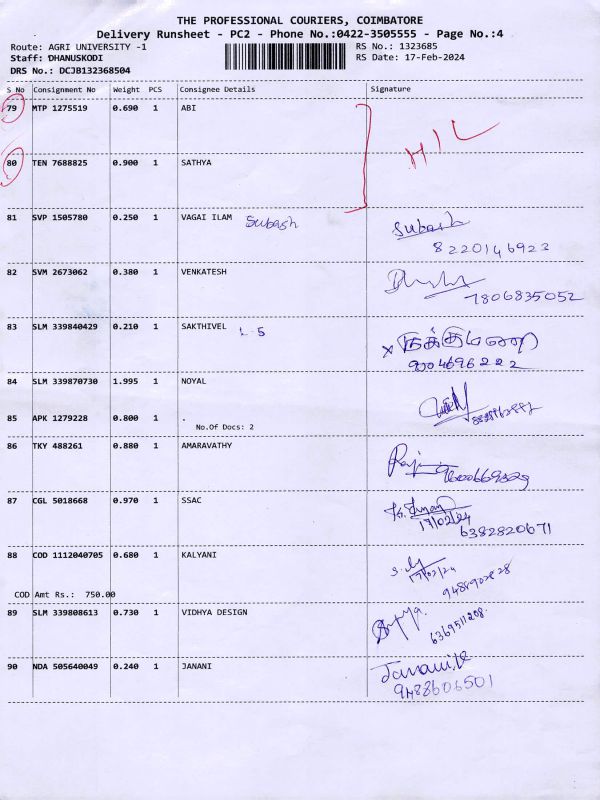 THE PROFESSIONAL COURIERS, COIMBATORE
Delivery Runsheet - PC2 - Phone No.:0422-3505555 - Page No.:4
Route: AGRI UNIVERSITY -1
RS No.: 1323685
Staff: DHANUSKODI
RS Date: 17-Feb-2024
DRS No.: DCJB132368504
S No Consignment No Weight PCS Consignee Details Signature
79 MTP 1275519 0.690 1 ABI
80 TEN 7688825 0.900 1 SATHYA
81 SVP 1505780 0.250 1 VAGAI ILAM Subash Subash
8220146923
82 SVM 2673062 0.380 1 VENKATESH
7806835052
83 SLM 339840429 0.210 1 SAKTHIVEL L-5
9004696222
84 SLM 339870730 1.995 1 NOYAL
85 APK 1279228 0.800 1 .
No.Of Docs: 2
86 TKY 488261 0.880 1 AMARAVATHY
87 CGL 5018668 0.970 1 SSAC
17/02/24
6382820671
88 COD 1112040705 0.680 1 KALYANI
17/02/24
COD Amt Rs.: 750.00
89 SLM 339808613 0.730 1 VIDHYA DESIGN
6369511208
90 NDA 505640049 0.240 1 JANANI Janani.K
9488606501